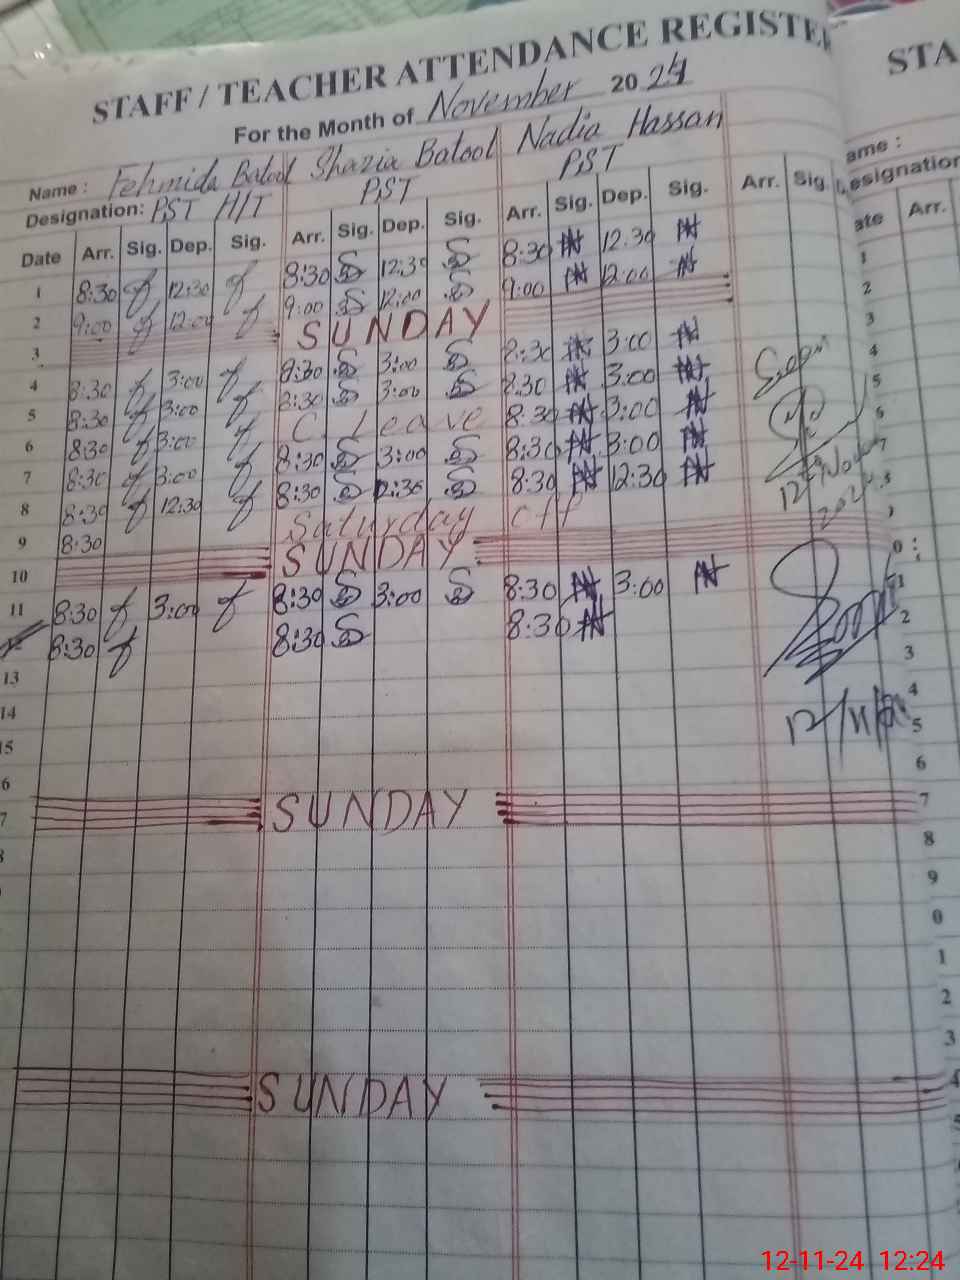 STAFF / TEACHER ATTENDANCE REGISTER
For the Month of November 2024
Name : Fehmida Batool Shazia Batool Nadia Hassan
Designation: PST H/T PST PST
Date Arr. Sig. Dep. Sig. Arr. Sig. Dep. Sig. Arr. Sig. Dep. Sig. Arr. Sig.
1 8:30 12:30 8:30 12:30 8:30 12:30
2 9:00 12:00 9:00 12:00 9:00 12:00
3 SUNDAY
4 8:30 3:00 8:30 3:00 8:30 3:00
5 8:30 3:00 8:30 3:00 8:30 3:00
6 8:30 3:00 C. Leave 8:30 3:00
7 8:30 3:00 8:30 3:00 8:30 3:00
8 8:30 12:30 8:30 12:30 8:30 12:30
9 8:30 Saturday off
10 SUNDAY
11 8:30 3:00 8:30 3:00 8:30 3:00
8:30 8:30 8:30
13
14
15
6
7 SUNDAY
8
SUNDAY
STA
ame :
esignation
ate Arr.
1
2
3
4
5
6
7
8
0
1
2
3
4
5
6
7
8
9
0
1
2
3
4
5
12-11-24 12:24